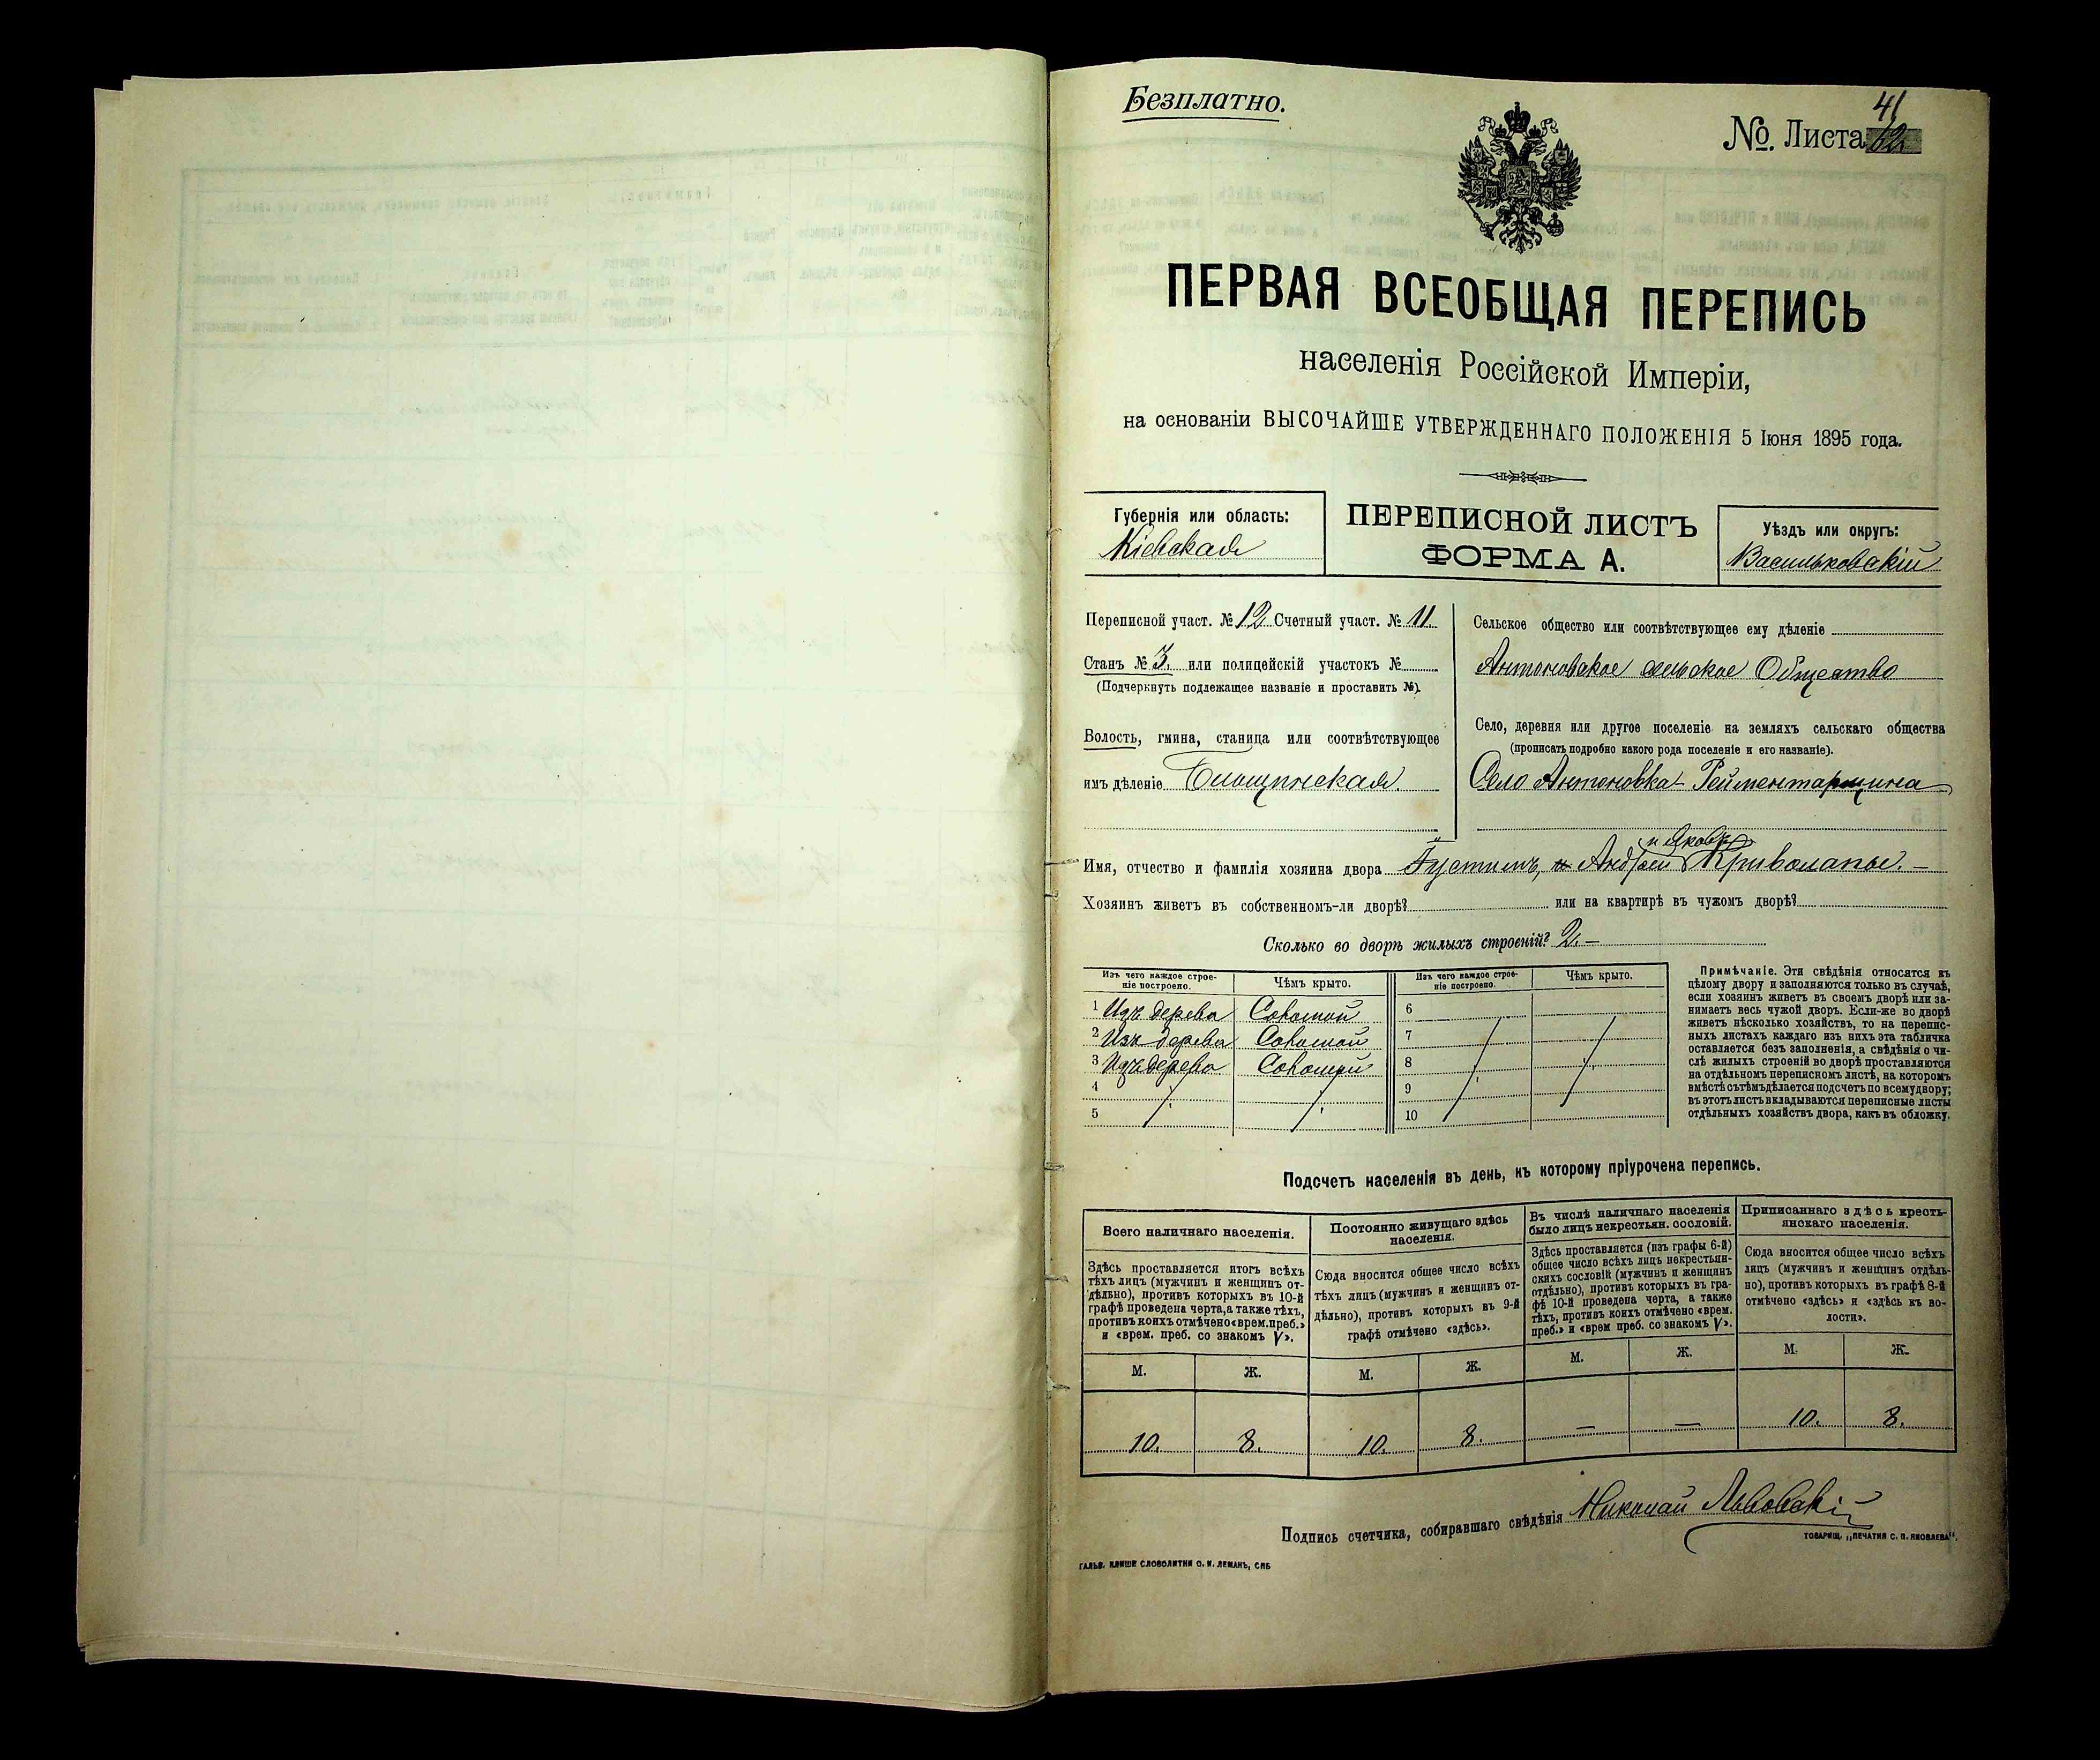 Безплатно.
41
№. Листа 62
ПЕРВАЯ ВСЕОБЩАЯ ПЕРЕПИСЬ
населенія Россійской Имперіи,
на основаніи ВЫСОЧАЙШЕ УТВЕРЖДЕННАГО ПОЛОЖЕНІЯ 5 Іюня 1895 года.
Губернія или область:
Кіевская
ПЕРЕПИСНОЙ ЛИСТЪ
ФОРМА А.
Уѣздъ или округъ:
Васильковскій
Переписной участ. № 12 Счетный участ. № 11.
Станъ № 3. или полицейскій участокъ №
(Подчеркнуть подлежащее названіе и проставить №).
Волость, гмина, станица или соотвѣтствующее
имъ дѣленіе
Сельское общество или соотвѣтствующее ему дѣленіе
Антоновское сельское Общество
Село, деревня или другое поселеніе на земляхъ сельскаго общества
(прописать подробно какого рода поселеніе и его названіе).
Село Антоновка Рейментарщина
и Яковъ
Имя, отчество и фамилія хозяина двора Густимъ, и Андрей Криволапы. —
Хозяинъ живетъ въ собственномъ-ли дворѣ? или на квартирѣ въ чужомъ дворѣ?
Сколько во дворѣ жилыхъ строеній? 2. —
Изъ чего каждое строеніе построено.
Чѣмъ крыто.
Изъ чего каждое строеніе построено.
Чѣмъ крыто.
1 Изъ дерева Соломой 6
2 Изъ дерева Соломой 7
3 Изъ дерева Соломой 8
4 9
5 10
Примѣчаніе. Эти свѣдѣнія относятся къ
цѣлому двору и заполняются только въ случаѣ,
если хозяинъ живетъ въ своемъ дворѣ или за-
нимаетъ весь чужой дворъ. Если-же во дворѣ
живетъ нѣсколько хозяйствъ, то на перепис-
ныхъ листахъ каждаго изъ нихъ эта табличка
оставляется безъ заполненія, а свѣдѣнія о чи-
слѣ жилыхъ строеній во дворѣ проставляются
на отдѣльномъ переписномъ листѣ, на которомъ
вмѣстѣ съ тѣмъ дѣлается подсчетъ по всему двору;
въ этотъ листъ вкладываются переписные листы
отдѣльныхъ хозяйствъ двора, какъ въ обложку.
Подсчетъ населенія въ день, къ которому пріурочена перепись.
Всего наличнаго населенія.
Здѣсь проставляется итогъ всѣхъ
тѣхъ лицъ (мужчинъ и женщинъ от-
дѣльно), противъ которыхъ въ 10-й
графѣ проведена черта, а также тѣхъ,
противъ коихъ отмѣчено «врем. преб.»
и «врем. преб. со знакомъ V».
Постоянно живущаго здѣсь
населенія.
Сюда вносится общее число всѣхъ
тѣхъ лицъ (мужчинъ и женщинъ от-
дѣльно), противъ которыхъ въ 9-й
графѣ отмѣчено «здѣсь».
Въ числѣ наличнаго населенія
было лицъ некрестьян. сословій.
Здѣсь проставляется (изъ графы 6-й)
общее число всѣхъ лицъ некрестьян-
скихъ сословій (мужчинъ и женщинъ
отдѣльно), противъ которыхъ въ гра-
фѣ 10-й проведена черта, а также
тѣхъ, противъ коихъ отмѣчено «врем.
преб.» и «врем преб. со знакомъ V».
Приписаннаго здѣсь кресть-
янскаго населенія.
Сюда вносится общее число всѣхъ
лицъ (мужчинъ и женщинъ отдѣль-
но), противъ которыхъ въ графѣ 8-й
отмѣчено «здѣсь» и «здѣсь къ во-
лости».
М. Ж. М. Ж. М. Ж. М. Ж.
10. 8. 10. 8. — — 10. 8.
Подпись счетчика, собиравшаго свѣдѣнія Николай Львовскій
ТОВАРИЩ. „ПЕЧАТНЯ С. П. ЯКОВЛЕВА".
ГАЛЬВ. КЛИШЕ СЛОВОЛИТНИ О. И. ЛЕМАНЪ, СПБ